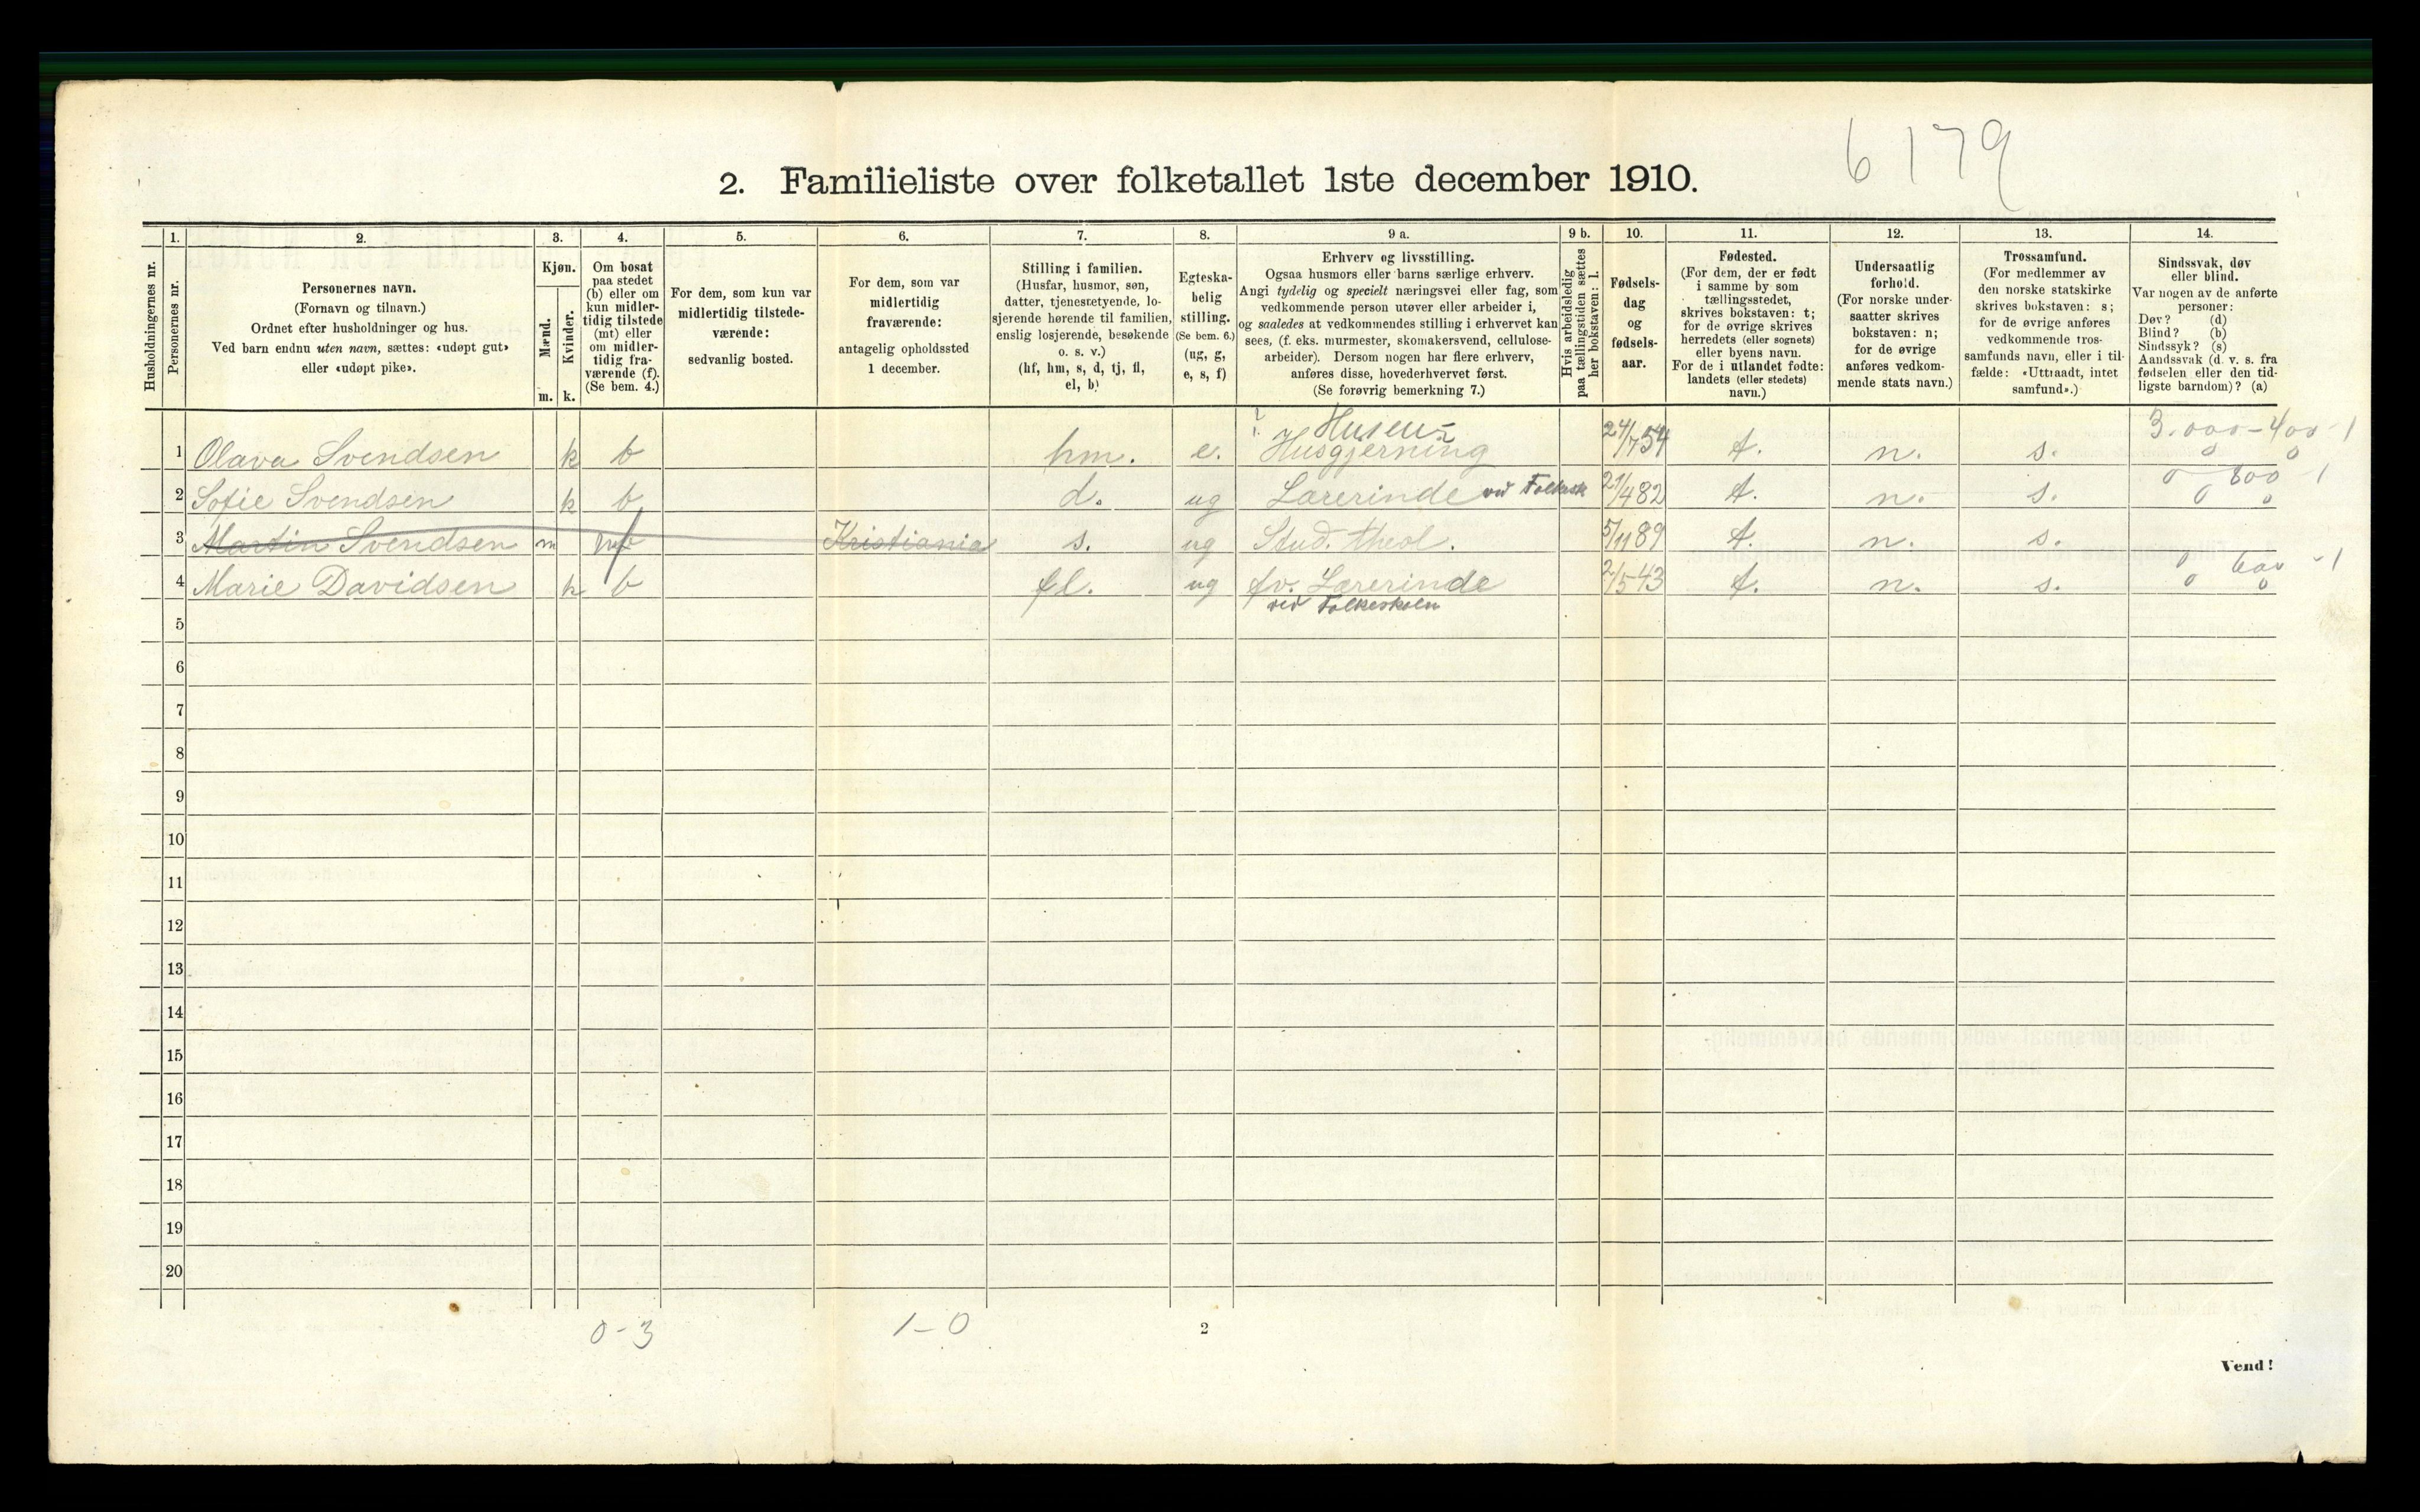 6179
2. Familieliste over folketallet 1ste december 1910.
1. 2. 3. 4. 5. 6. 7. 8. 9 a. 9 b. 10. 11. 12. 13. 14.
Husholdningernes nr.
Personernes nr.
Personernes navn.
(Fornavn og tilnavn.)
Ordnet efter husholdninger og hus.
Ved barn endnu uten navn, sættes: «udøpt gut»
eller «udøpt pike».
Kjøn.
Mænd.
Kvinder.
m. k.
Om bosat
paa stedet
(b) eller om
kun midler-
tidig tilstede
(mt) eller
om midler-
tidig fra-
værende (f).
(Se bem. 4.)
For dem, som kun var
midlertidig tilstede-
værende:
sedvanlig bosted.
For dem, som var
midlertidig
fraværende:
antagelig opholdssted
1 december.
Stilling i familien.
(Husfar, husmor, søn,
datter, tjenestetyende, lo-
sjerende hørende til familien,
enslig losjerende, besøkende
o. s. v.)
(hf, hm, s, d, tj, fl,
el, b)
Egteska-
belig
stilling.
(Se bem. 6.)
(ug, g,
e, s, f)
Erhverv og livsstilling.
Ogsaa husmors eller barns særlige erhverv.
Angi tydelig og specielt næringsvei eller fag, som
vedkommende person utøver eller arbeider i,
og saaledes at vedkommendes stilling i erhvervet kan
sees, (f. eks. murmester, skomakersvend, cellulose-
arbeider). Dersom nogen har flere erhverv,
anføres disse, hovederhvervet først.
(Se forøvrig bemerkning 7.)
Hvis arbeidsledig
paa tællingstiden sættes
her bokstaven: l.
Fødsels-
dag
og
fødsels-
aar.
Fødested.
(For dem, der er født
i samme by som
tællingsstedet,
skrives bokstaven: t;
for de øvrige skrives
herredets (eller sognets)
eller byens navn.
For de i utlandet fødte:
landets (eller stedets)
navn.)
Undersaatlig
forhold.
(For norske under-
saatter skrives
bokstaven: n;
for de øvrige
anføres vedkom-
mende stats navn.)
Trossamfund.
(For medlemmer av
den norske statskirke
skrives bokstaven: s;
for de øvrige anføres
vedkommende tros-
samfunds navn, eller i til-
fælde: «Uttraadt, intet
samfund».)
Sindssvak, døv
eller blind.
Var nogen av de anførte
personer:
Døv? (d)
Blind? (b)
Sindssyk? (s)
Aandssvak (d. v. s. fra
fødselen eller den tid-
ligste barndom)? (a)
3.000-400-1
1 Olava Svendsen k b hm. e. Husgjerning 24/7 54 t. n. s. 0 0
0 800 1
2 Sofie Svendsen k b d. ug Lærerinde ved Folkesk 21/4 82 t. n. s. 0 0
3 Martin Svendsen m f Kristiania s. ug Stud. theol. 5/11 89 t. n. s.
0 600 -1
4 Marie Davidsen k b fl. ug fv. Lærerinde 2/5 43 t. n. s. 0 0
ved Folkeskolen
5
6
7
8
9
10
11
12
13
14
15
16
17
18
19
20
0-3 1-0 2
Vend!